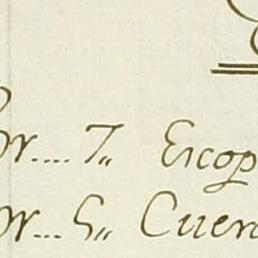 or.... 7,, Escop
or... 5,, Cuer